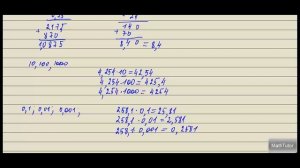 2175 140
+ 870 + 70
10,875 8,40 = 8,4
10, 100, 1000
4,254·10=42,54
4,254·100=425,4
4,254·1000=4254
0,1, 0,01, 0,001,
258,1·0,1=25,81
258,1·0,01=2,581
258,1·0,001=0,2581
MathTutor